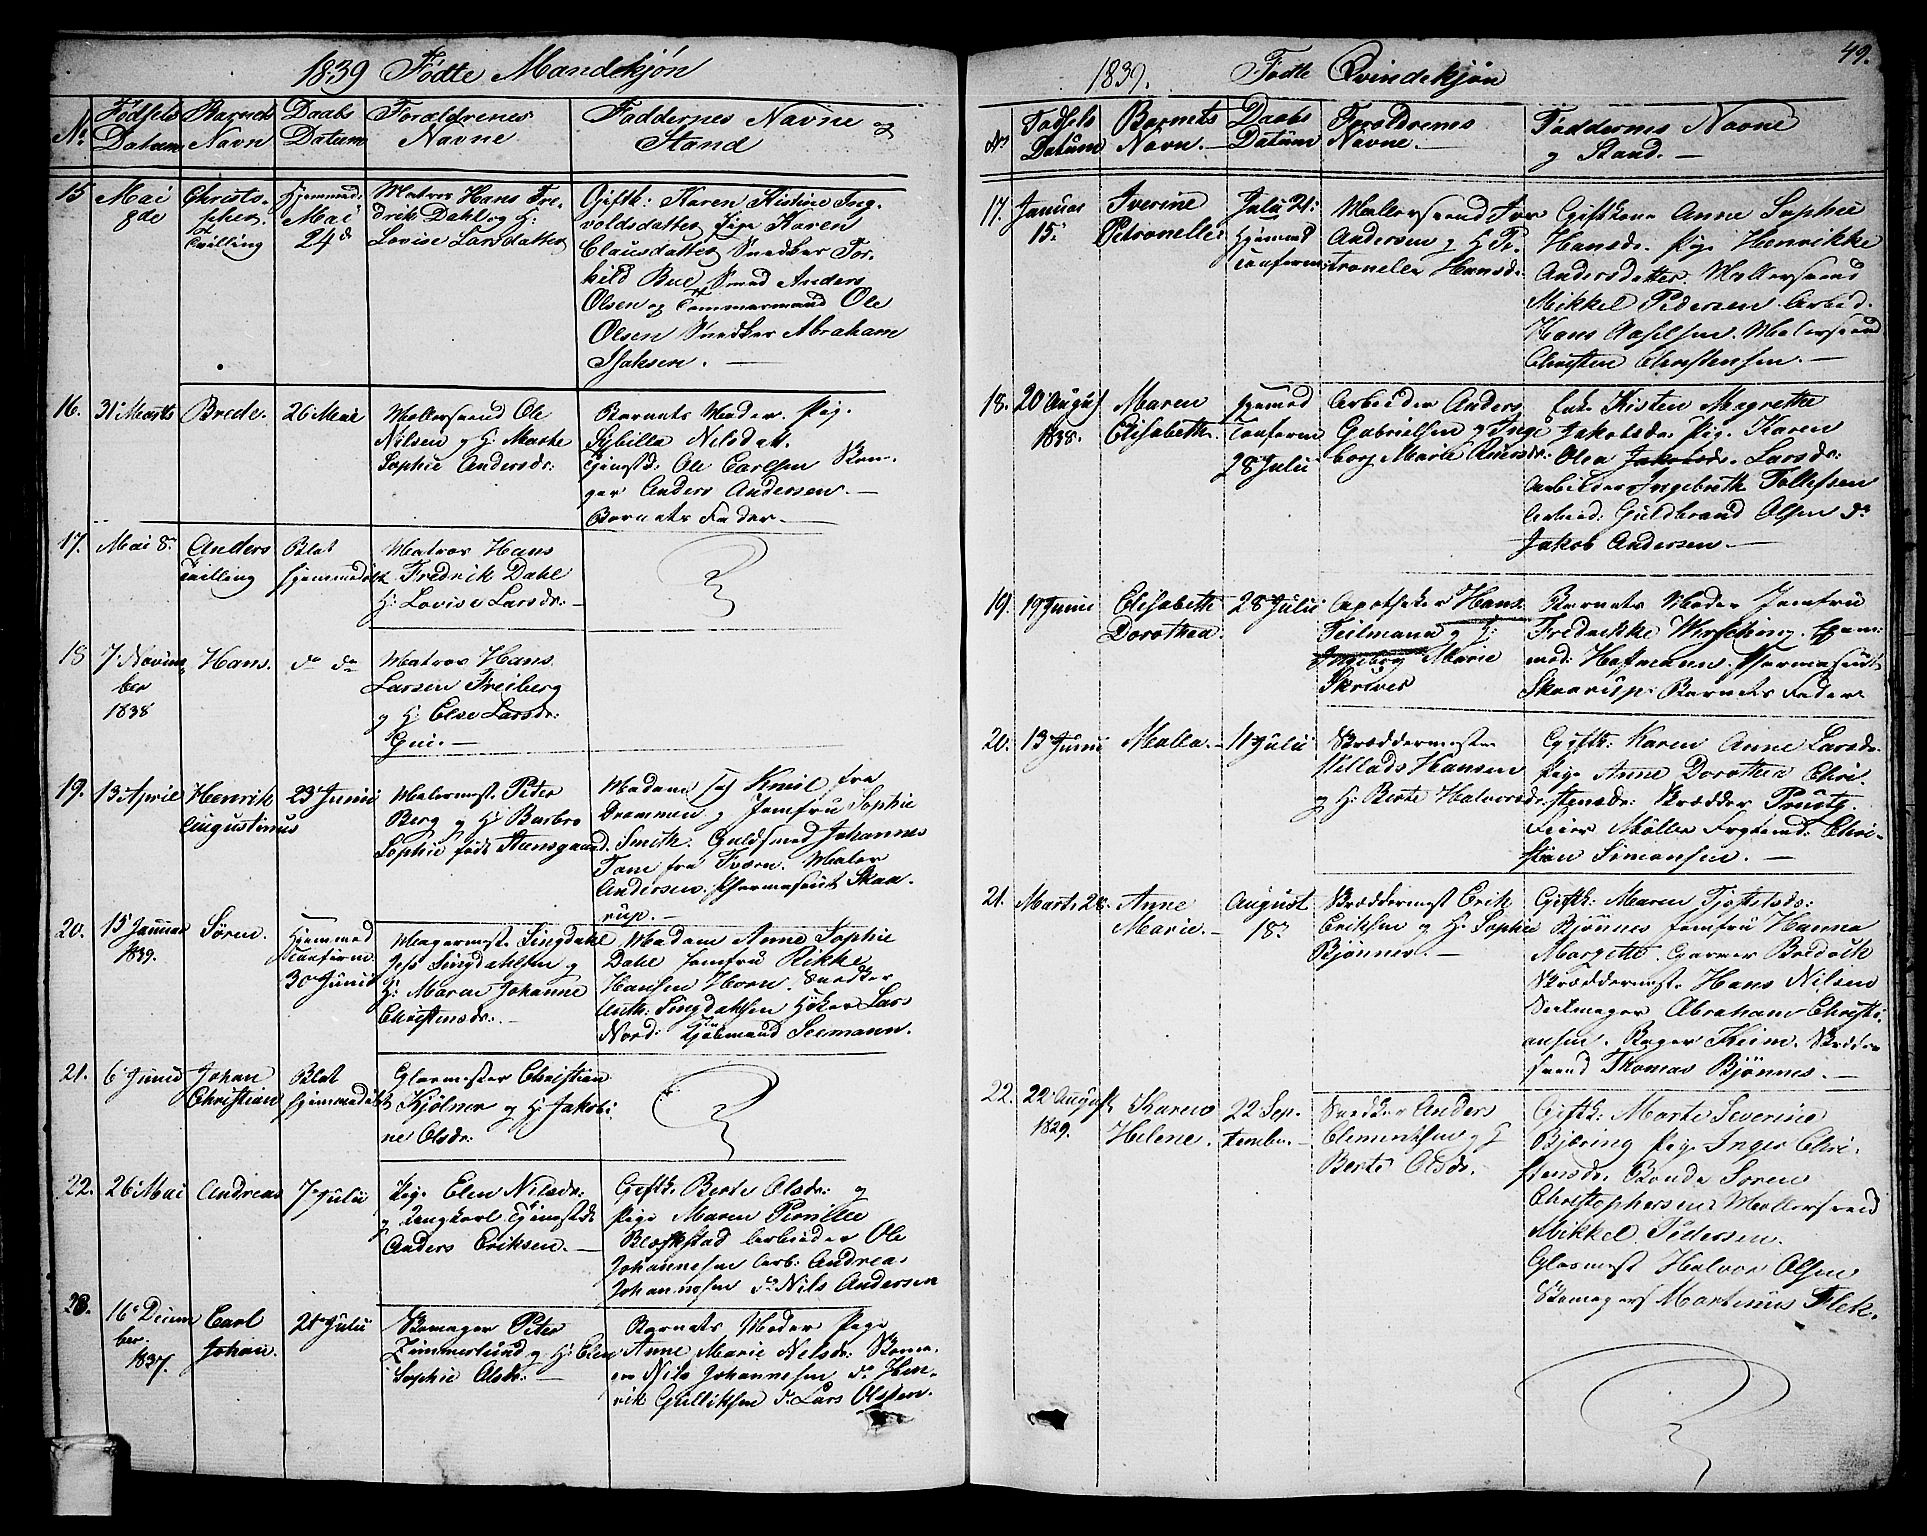 1839 Födte Mandekjön
No. Födsels Datum Barnets Navn Daabs Datum Forældrenes Navne Faddernes Navne og Stand
15 Mai 8de Christopher Tvilling Hjemmed. Mai 24de
Matros Hans Fre-
drik Dahl og H:
Lovise Larsdatter
Giftk: Karen Kistine Ing-
voldsdatter Pige Karen
Clausdatter Snedker Tor-
kild Bue Smed Anders
Olsen og Tømmermand Ole
Olsen Snedker Abraham
Isaksen. —
16. 31te Marts Brede. 26 Mai
Møllersvend Ole
Nilsen og H: Marthe
Sophie Andersdr:
Barnets Moder. Pig.
Sybilla Nilsdatt.
Tjenestd: Ole Carlsen
Anders Andersen. —
Barnets Fader. —
17. Mai 8de Anders Tvilling Blot hjemmedøbt
Matros Hans
Fredrik Dahl
H: Lovise Larsdr: —
18 7 Novem-
ber
1838
Hans. do do
Matros Hans
Larsen Freiberg
og H: Else Larsdr:
19. 13 April Henrik Augustinus 23 Junii
Malermest. Peter
Berg og H: Barbro
Sophie föd Stensgaard.
Madame Knüt fra
Drammen og Jomfru Sophie
Smith. Guldsmed Johannes
Andersen. Pharmaseut Skaa-
rup. —
20. 15 Januar 1839. Sören. Hjemmed Confirm 30 Junii
Magermest. Lingdahl
Lingdahlsen og
H: Maren Johanne
Christensdr: —
Madam Anne Sophie
Dahl Jomfru Rikke
Hansen Horn. Snedker
Lingdahlsen Höker Lars
Nord: Kjöbmand Seemann.
21. 6 Junii Johan Christian Blot hjemmedøbt
Glasmester Christian
Kjölner og H: Jakobi-
ne Olsdr:
22. 26 Mai Andreas 7 Julii
Pige Elen Nilsdr:
og Ungkarl Tjenestdr
Anders Eriksen. —
Giftk. Berte Olsdr: og
Pige Maren Pernille
Arbeider Ole
Johannesen Arb: Andreas
Johannesen do Nils Andersen
23. 16 Decem-
ber.
1837.
Carl Johan. 21 Julii
Skomager Peter
Zimmerlund og H: Elen
Sophie Olsdr: —
Barnets Moder Pige
Anne Marie Nelsdr: Skoma-
er Nils Johannesen do Hen-
rik Gulliksen do Lars Olssen.
1839. Födte Qvindekjön 49.
No Födsels Datum Barnets Navn. — Daabs Datum Forældrenes Navne. — Faddernes Navne og Stand. —
17. Januar 15. Iverine Petronelle. Julii 21: Hjemmed Confirm:
Møllersvend Iver
Andersen og H: Pe-
tronelle Hansdr:
Giftkone Anne Sophie
Hansdr. Pige Henrikke
Andersdatter. Møllersvend
Mikkel Pedersen Arbeid.
Hans Axelsen. Malersvend
Christen Christensen. —
18. 20 August 1838. Maren Elisabeth. Hjemmed Confirm 28 Julii
Arbeider Anders
Gabrielsen og Inge-
borg Marie
Enke Kisten Magrethe
Jakobsdr. Pig. Karen
Olea Jakobsdr. Larsdr:
Arbeider Ingebreth Tollefsen
Arbeid: Guldbrand Olsen do
Jakob Andersen. —
19. 19 Junii Elisabeth Dorothea. 28 Julii
Apotheker Hans
Teilmann og H:
Ingeborg Marie
Barnets Moder Jomfru
Fredrikke Wersching.
Hofmann. Pharmaseut
Skaarup. Barnets Fader
20. 13 Junii Malla. — 11 Julii
Skræddermester
Villads Hansen
og H: Berte Halvorsdr.
Giftk: Karen Anne Larsdr.
Pige Anne Dorothea Chri-
stensdr: Skrædder
Feier Möller Chri-
stian Simonsen. —
21. Marts 28. Anne Marie. — August 18.
Skræddermest Erik
Eriksen og H. Sophie
Bjönnes. —
Giftk: Maren
Bjönnes Jomfru Hanna
Margette. Garver
Skræddermest. Hans Nilsen
Seilmager Abraham Christi-
ansen. Bager Heim. Skrædder
svend Thomas Bjönnes. —
22. 22 August 1829. Karen Helene. 22 Sep-
tember —
Snedker Anders
Clementsen og H
Berte Olsdr. —
Giftk: Marte Severine
Bjæring Pige Inger Chri-
stensdr. Bonde Soren
Christophersen Møllersvend
Mikkel Pedersen.
Glasmest Halvor Olsen
Skomager Martinius Flek.